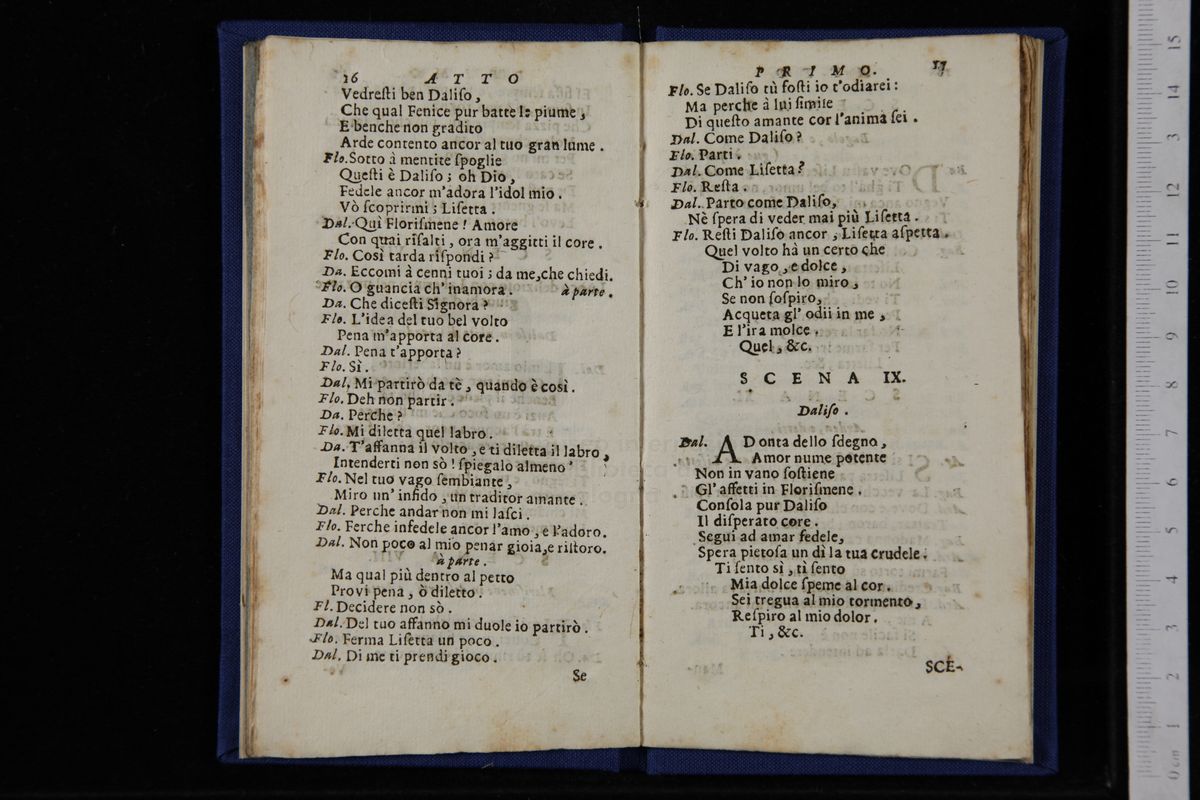 16 ATTO
Vedreſti ben Daliſo,
Che qual Fenice pur batte le piume,
E benche non gradito
Arde contento ancor al tuo gran lume.
Flo. Sotto à mentite ſpoglie
Queſti è Daliſo; oh Dio,
Fedele ancor m'adora l'idol mio.
Vò ſcoprirmi; Liſetta.
Dal. Quì Floriſmene! Amore
Con quai riſalti, ora m'aggitti il core.
Flo. Così tarda riſpondi?
Da. Eccomi à cenni tuoi; da me, che chiedi.
Flo. O guancia ch'inamora. à parte.
Da. Che diceſti Signora?
Flo. L'idea del tuo bel volto
Pena m'apporta al core.
Dal. Pena t'apporta?
Flo. Sì.
Dal. Mi partirò da tè, quando è così.
Flo. Deh non partir.
Da. Perche?
Flo. Mi diletta quel labro.
Da. T'affanna il volto, e ti diletta il labro,
Intenderti non sò! ſpiegalo almeno
Flo. Nel tuo vago ſembiante,
Miro un' infido, un traditor amante.
Dal. Perche andar non mi laſci.
Flo. Ferche infedele ancor l'amo, e l'adoro.
Dal. Non poco al mio penar gioia, e riſtoro.
à parte.
Ma qual più dentro al petto
Provi pena, ò diletto.
Fl. Decidere non sò.
Dal. Del tuo affanno mi duole io partirò.
Flo. Ferma Liſetta un poco.
Dal. Di me ti prendi gioco.
Se
PRIMO. 17
Flo. Se Daliſo tù foſti io t'odiarei:
Ma perche à lui ſimile
Di queſto amante cor l'anima ſei.
Dal. Come Daliſo?
Flo. Parti.
Dal. Come Liſetta?
Flo. Reſta.
Dal. Parto come Daliſo,
Nè ſpera di veder mai più Liſetta.
Flo. Reſti Daliſo ancor, Liſetta aſpetta.
Quel volto hà un certo che
Di vago, e dolce,
Ch' io non lo miro,
Se non ſoſpiro,
Acqueta gl' odii in me,
E l'ira molce.
Quel, &c.
SCENA IX.
Daliſo.
Dal. A Donta dello ſdegno,
Amor nume potente
Non in vano ſoſtiene
Gl' affetti in Floriſmene.
Conſola pur Daliſo
Il diſperato core.
Segui ad amar fedele,
Spera pietoſa un dì la tua crudele.
Ti ſento sì, ti ſento
Mia dolce ſpeme al cor.
Sei tregua al mio tormento,
Reſpiro al mio dolor.
Ti, &c.
SCE-
0 cm 1 2 3 4 5 6 7 8 9 10 11 12 13 14 15